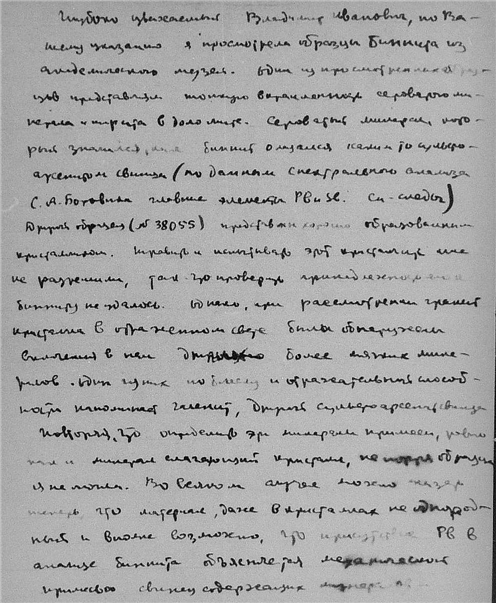 Глубоко уважаемый Владимир Иванович, по Ва-
шему указанию я просмотрела образцы биннита из
академического музея. Один из просмотренных образ-
цов представлял тонкую вкрапленность сероватого ми-
нерала и пирита в доломите. Сероватый минерал, кото-
рый значился, как биннит оказался каким то сульфо-
арсенитом свинца (по данным спектрального анализа
С. А. Боровика главные элементы Pb и Sb. Cu - следы)
Другой образец (№ 38055) представлен хорошо образованным
кристалликом. Травить и испытывать этот кристаллик мне
не разрешили, так что проверить принадлежность его к
бинниту не удалось. Однако, при рассмотрении граней
кристалла в отраженном свете были обнаружены
включения в нем других более мягких мине-
ралов. Один из них по блеску и отражательной способ-
ности напоминает галенит, другой сульфоарсенит свинца
Повторяю, что определить эти минералы примеси, равно
как и минерал слагающий кристалл, не портя образца
я не могла. Во всяком случае можно сказать
теперь, что материал, даже в кристаллах не однород-
ный и вполне возможно, что присутствие Pb в
анализе биннита объясняется механической
примесью свинец содержащих минералов